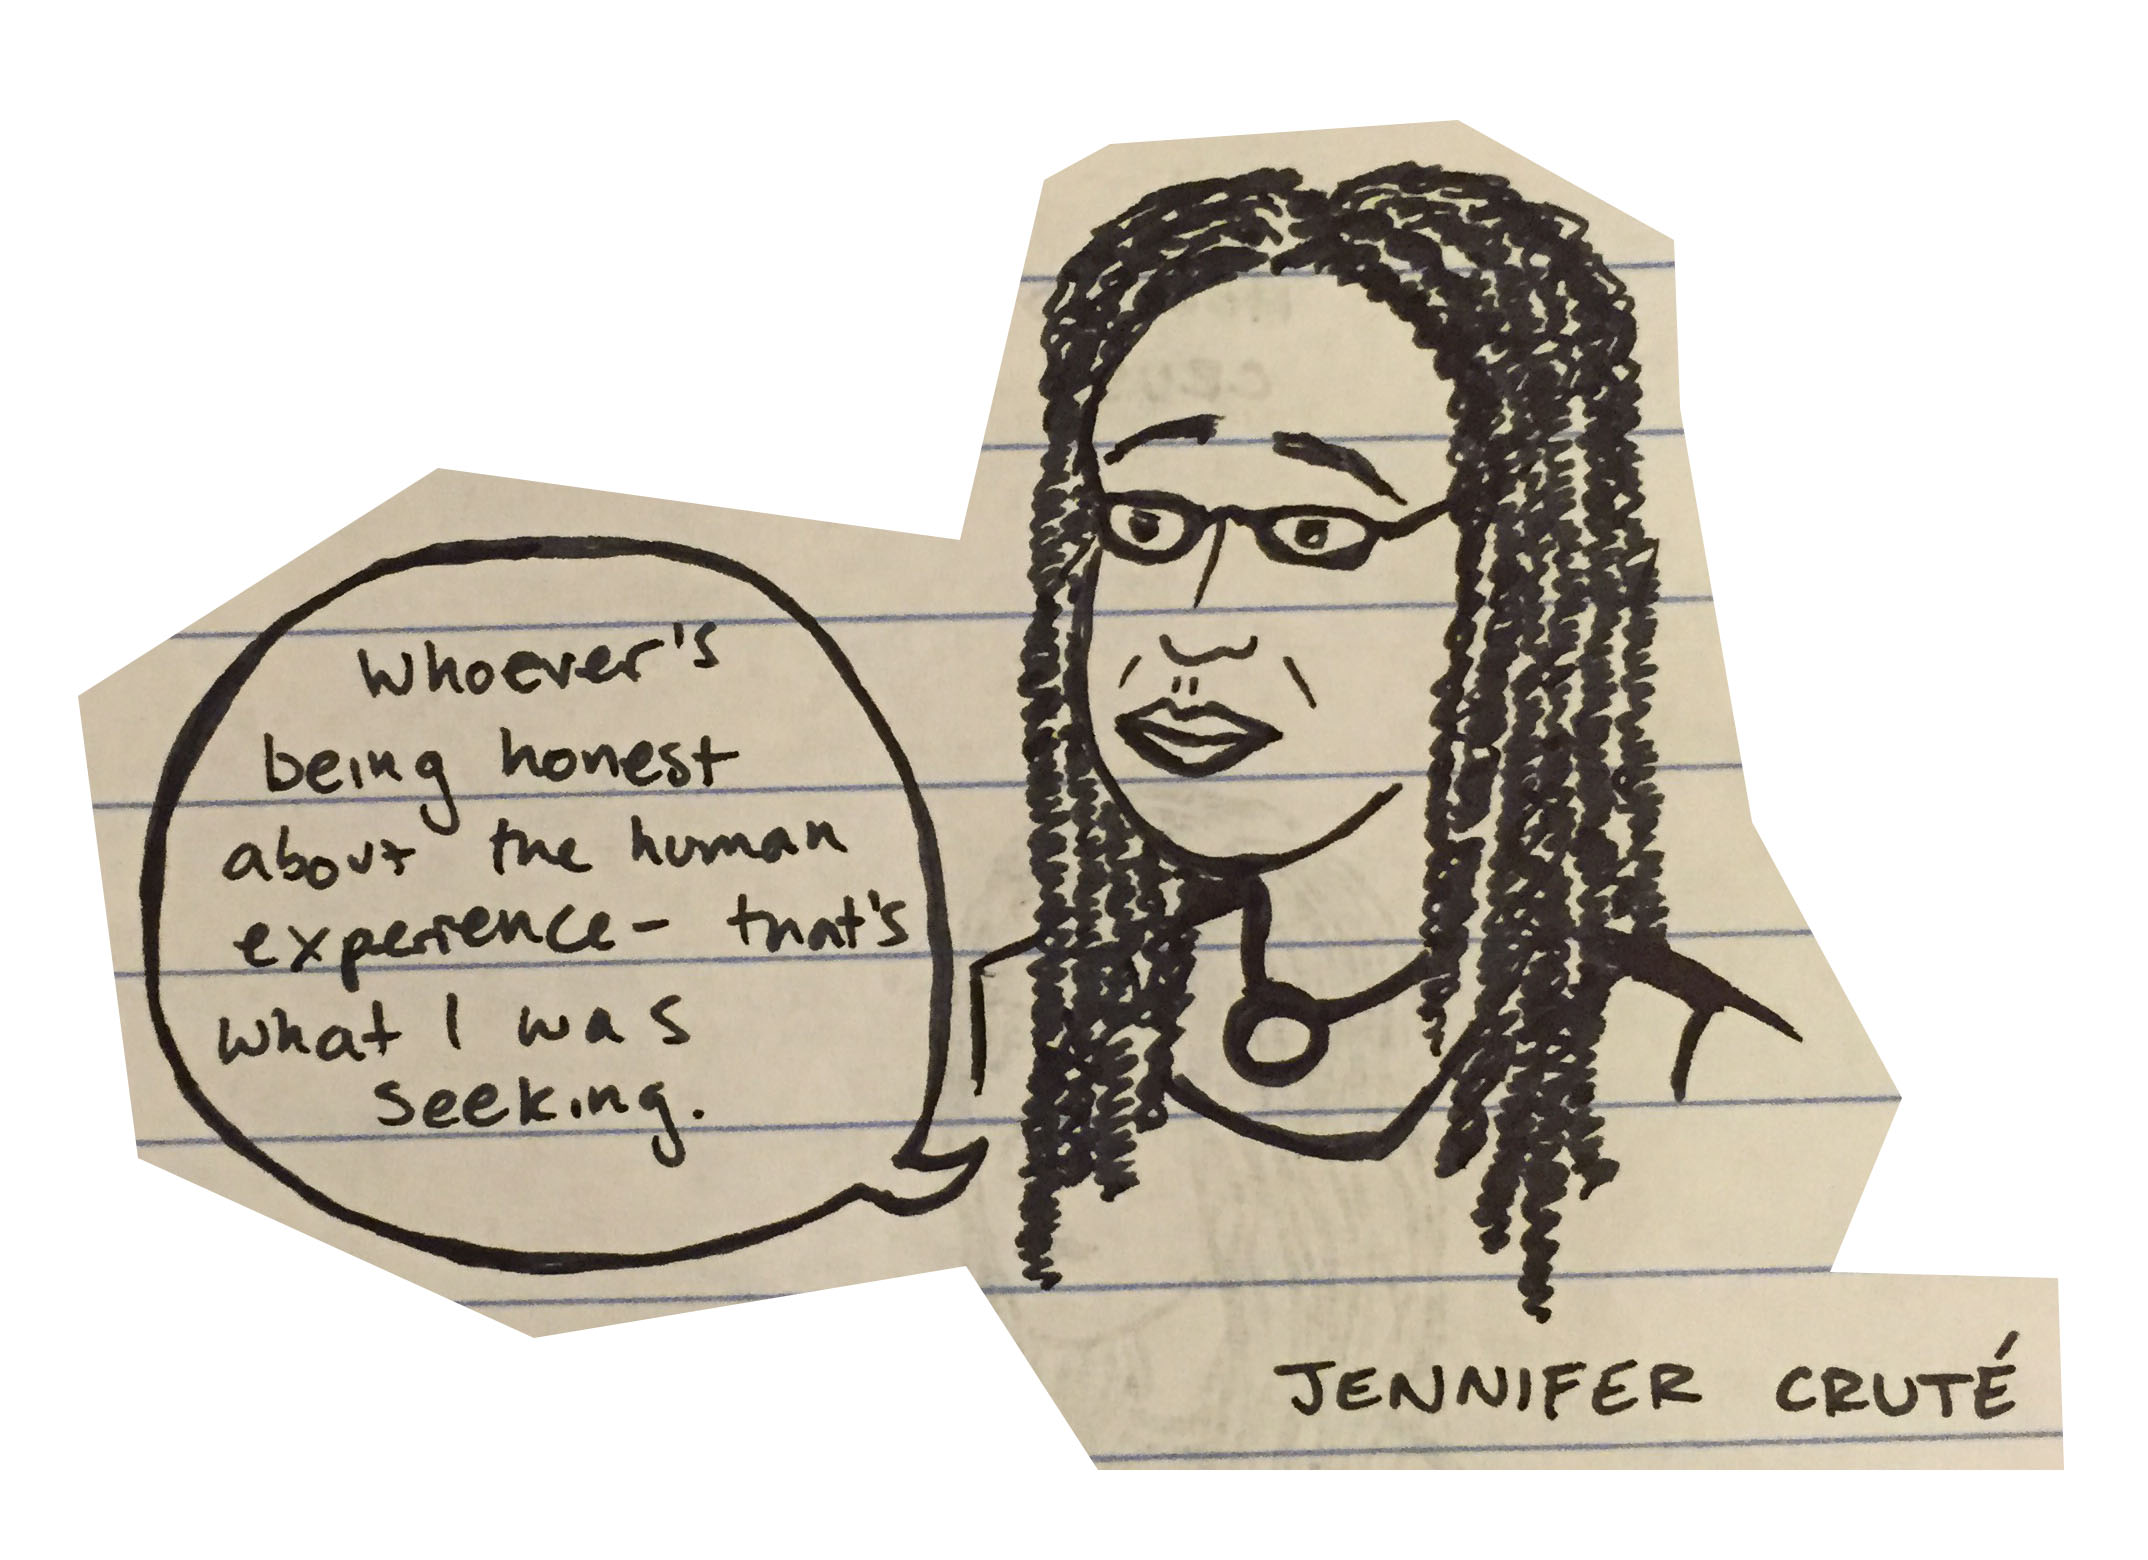 Whoever's
being honest
about the human
experience - that's
what I was
seeking.
JENNIFER CRUTÉ